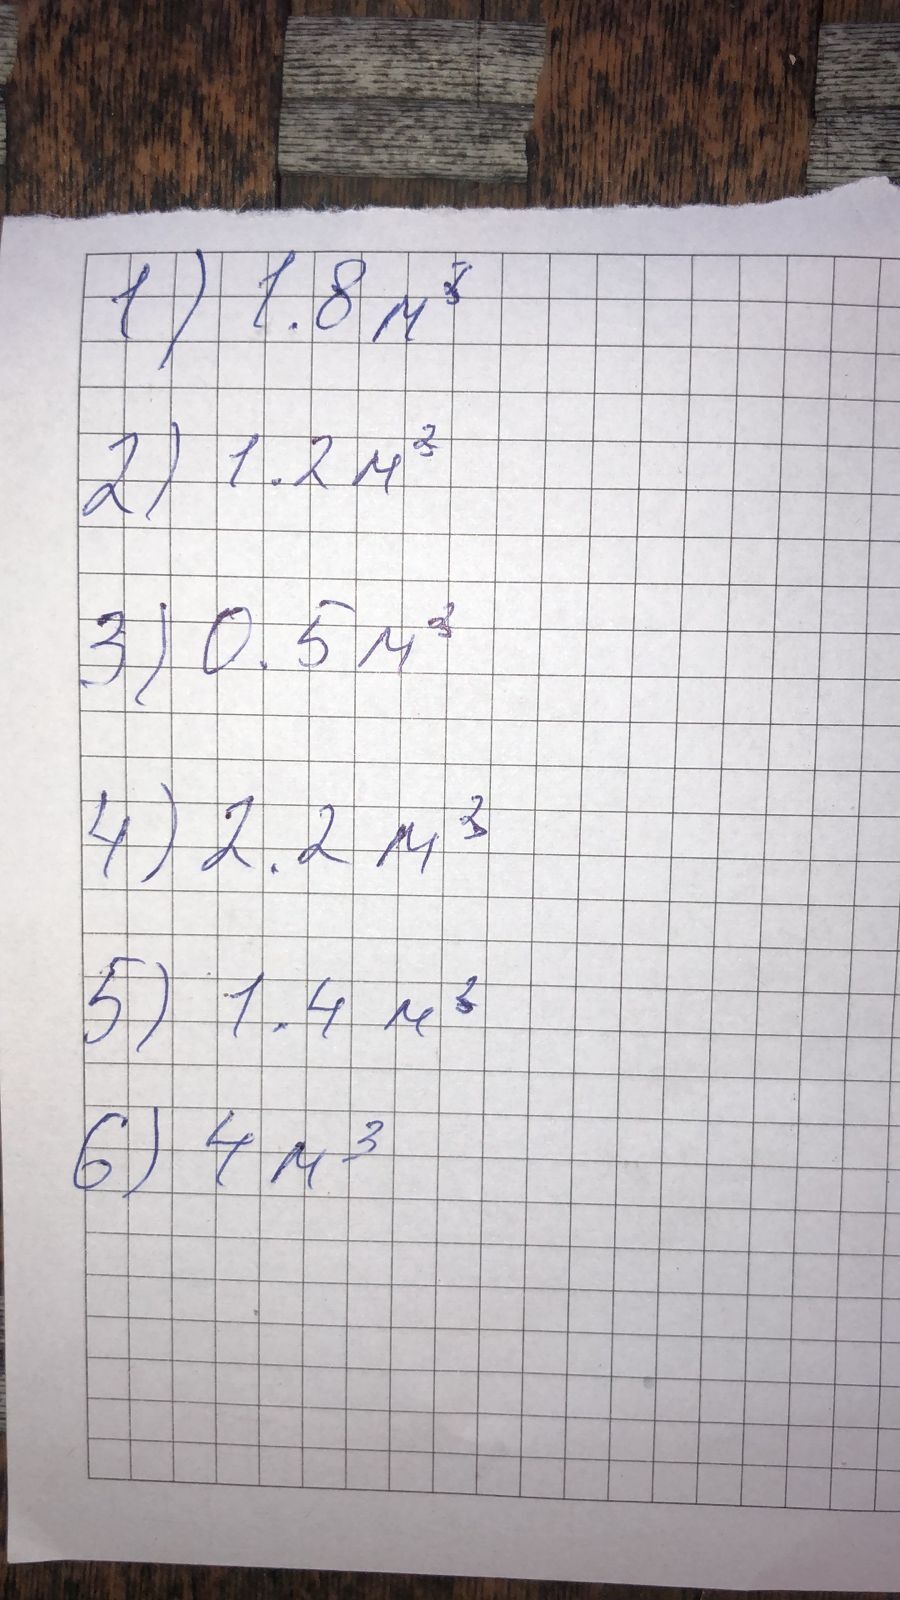 1) 1.8 м³
2) 1.2 м³
3) 0.5 м³
4) 2.2 м³
5) 1.4 м³
6) 4 м³